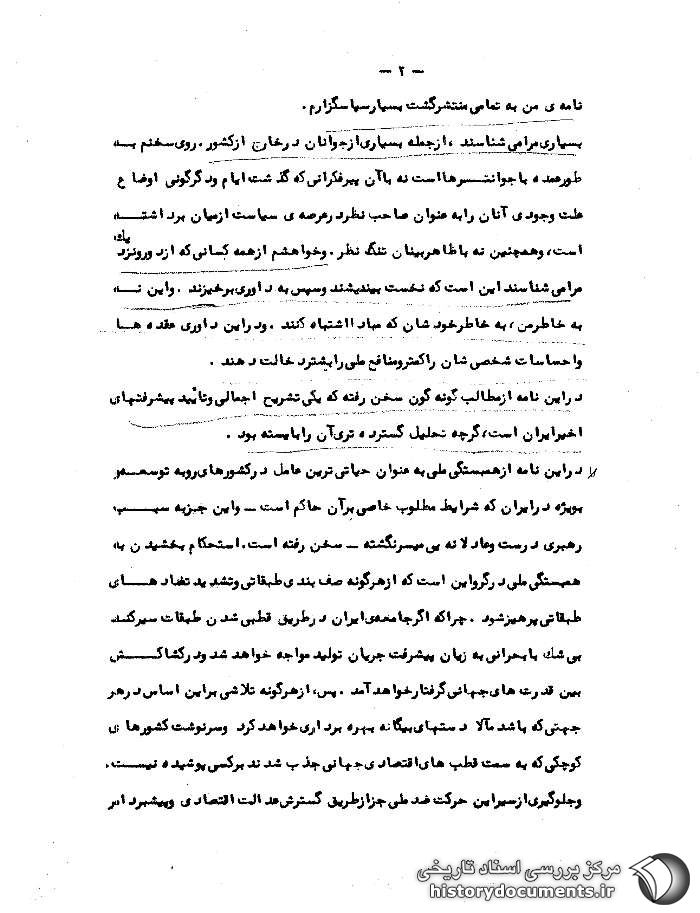 — ۲ —
نامه ی من به تمامی منتشرگشت بسیارسپاسگزارم .
بسیاری مرامی شناسند ، ازجمله بسیاری ازجوانان درخارج ازکشور . روی سخنم بـه
طورعمده باجوانتـــرهااست نه باآن پیرفکرانی که گذشت ایام ودگرگونی اوضاع
علت وجودی آنان رابه عنوان صاحب نظردرعرصه ی سیاست ازمیان برداشتــه
است، وهمچنین نه باظاهربینان تنگ نظر . وخواهشم ازهمه کسانی که ازدورونزدیک
مرامی شناسند این است که نخست بیندیشند وسپس به داوری برخیزند . واین نــه
به خاطرمن، به خاطرخودشان که مبادااشتباه کنند . ودراین داوری عقده هــا
واحساسات شخصی شان راکمترومنافع ملی رابیشتردخالت دهند .
دراین نامه ازمطالب گونه گون سخن رفته که یکی تشریح اجمالی وتأیید پیشرفتهای
اخیرایران است، گرچه تحلیل گسترده تری آن رابایسته بود .
دراین نامه ازهمبستگی ملی به عنوان حیاتی ترین عامل درکشورهای روبه توسعه و
بویژه درایران که شرایط مطلوب خاصی برآن حاکم است ــ واین جزبه سبــب
رهبری درست وعادلانه یی میسرنگشته ــ سخن رفته است. استحکام بخشیدن به
همبستگی ملی درگرواین است که ازهرگونه صف بندی طبقاتی وتشدید تضادهــای
طبقاتی پرهیزشود . چراکه اگرجامعه ی ایران درطریق قطبی شدن طبقات سیرکند
بی شک بابحرانی به زیان پیشرفت جریان تولید مواجه خواهد شد ودرکشاکــش
بین قدرت های جهانی گرفتارخواهدآمد . پس، ازهرگونه تلاشی براین اساس درهر
جهتی که باشد مآلا دستهای بیگانه بهره برداری خواهدکرد وسرنوشت کشورهای
کوچکی که به سمت قطب های اقتصادی جهانی جذب شدند برکسی پوشیده نیست.
وجلوگیری ازسیراین حرکت ضدملی جزازطریق گسترش عدالت اقتصادی وپیشبرد امر
مرکز بررسی اسناد تاریخی
historydocuments.ir